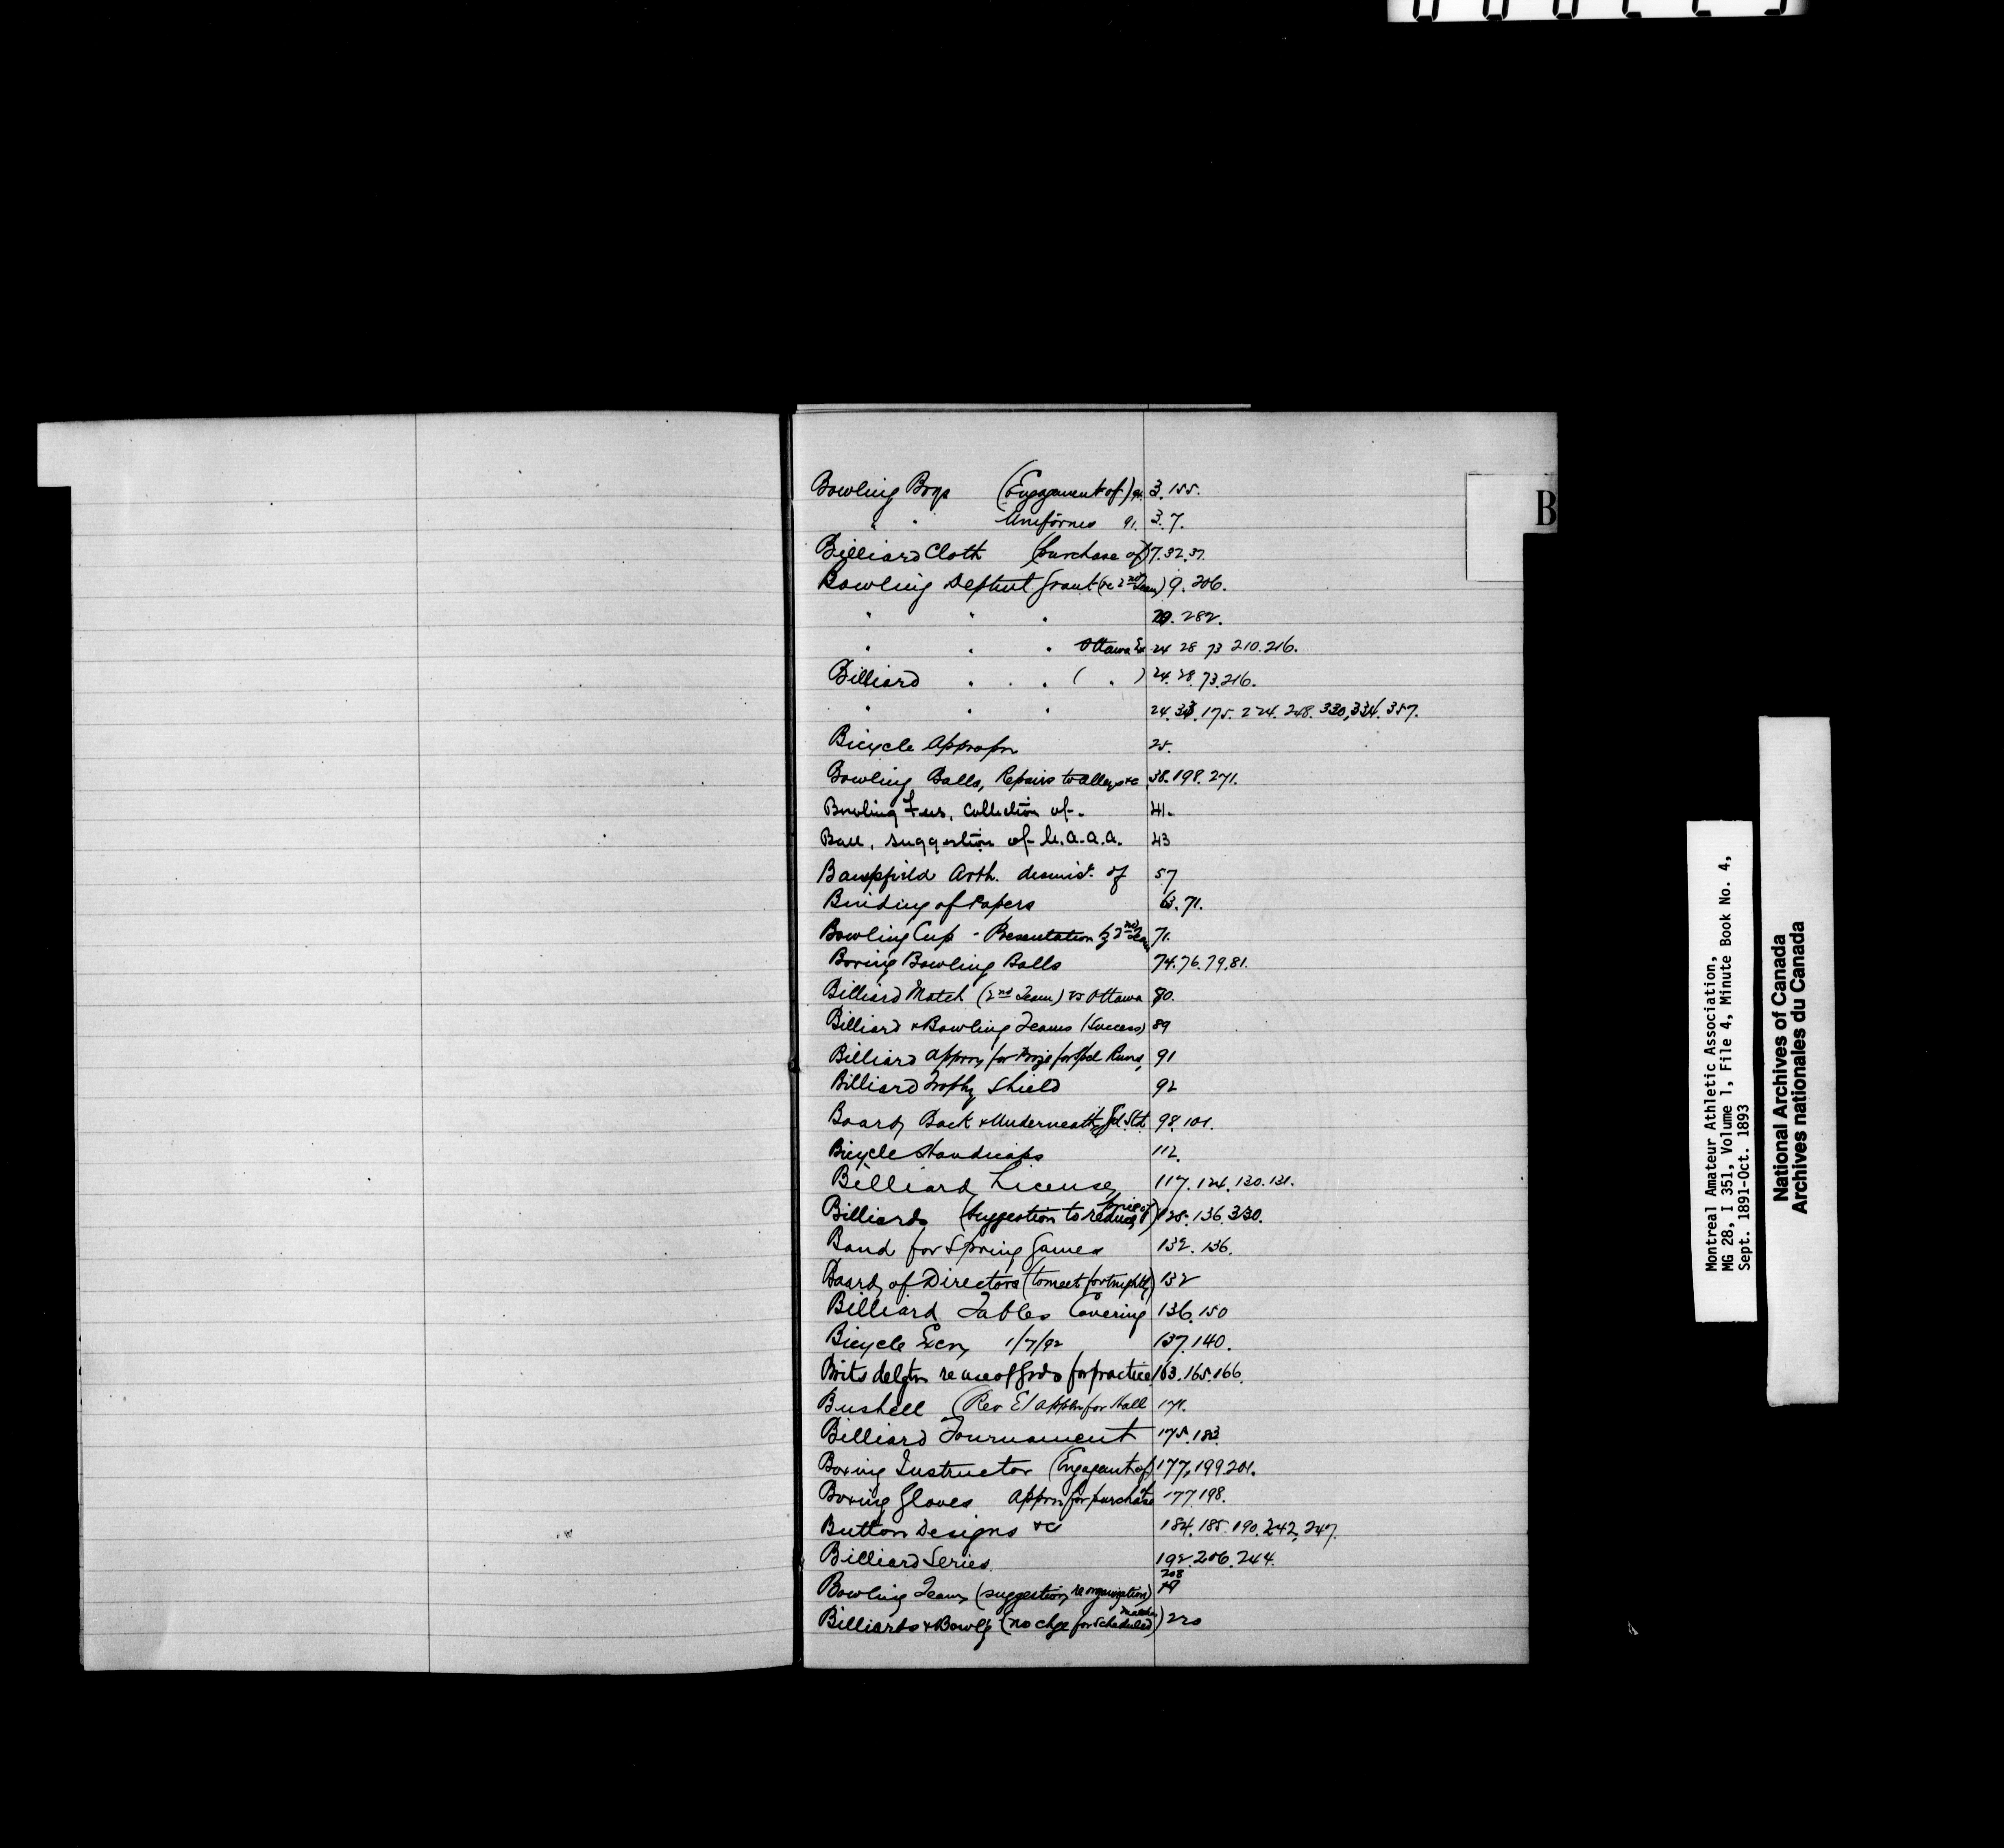 B
Bowling Boys (Engagement of) 91. 3. 155.
" " Uniforms 91. 3. 7.
Billiard Cloth (purchase of) 7. 32. 37.
Bowling Deptmt Grant (re 2nd Team) 9. 206.
" " " 282.
" " " Ottawa 24 28 73 210. 216.
Billiard " " " ( " ) 24. 28. 73. 216.
" " " 24. 33. 175. 224. 248. 330, 334. 357.
Bicycle Appropn 25.
Bowling Balls, Repairs to Alleys &c 38. 198. 271.
Bowling Fees, Collection of. 41.
Ball, suggestion of M.A.A.A. 43
Bampfield Arth. dismisl. of 57
Binding of Papers 63. 71.
Bowling Cup - Presentation by 2nd Team 71.
Boring Bowling Balls 74. 76. 79. 81.
Billiard Match (2nd Team) vs Ottawa 80.
Billiard & Bowling Teams (Success) 89
Billiard Appron for Prize for Spcl Runs 91
Billiard Trophy Shield 92
Boards Back & Underneath Gd. Std. 98. 101.
Bicycle Handicaps 112.
Billiard License 117. 124. 130. 131.
Billiards (Suggestion to reduce price of) 128. 136. 330.
Band for Spring Games 132. 136.
Board of Directors (to meet fortnightly) 132
Billiard Tables Covering 136. 150
Bicycle Excn 1/7/92 137. 140.
Brits delgtn re use of Grds for practice 163. 165. 166.
Bushell (Rev E) Appln for Hall 171.
Billiard Tournament 175. 183.
Boxing Instructor (Engagemt of) 177, 199. 201.
Boxing Gloves Appron for purchase of 177. 198.
Button Designs &c 184. 185. 190. 242. 247.
Billiard Series. 192. 206. 244.
Bowling Team (suggestion re organization) 208
Billiards & Bowlg (no chge for scheduled matches) 220
Montreal Amateur Athletic Association,
MG 28, I 351, Volume 1, File 4, Minute Book No. 4,
Sept. 1891-Oct. 1893
National Archives of Canada
Archives nationales du Canada